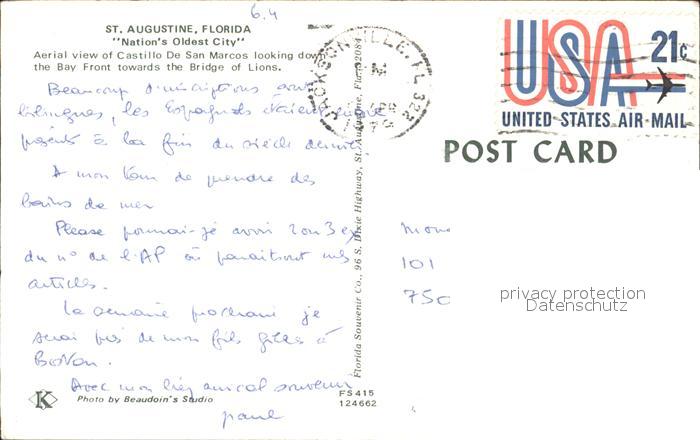 6.4
ST. AUGUSTINE, FLORIDA
"Nation's Oldest City"
Aerial view of Castillo De San Marcos looking down
the Bay Front towards the Bridge of Lions.
Beaucoup d'inscriptions sont
bilingues, les Espagnols étaient
à la fin du siècle dernier.
A mon tour de prendre des
bains de mer
Please pourrai-je avoir 2 ou 3 ex
du n° de l'AP où paraîtront mes
articles.
La semaine prochaine je
serai près de mon fils Gilles à
Boston.
Avec mon amical souvenir
Photo by Beaudoin's Studio
K
FS415
124662
Florida Souvenir Co., 96 S. Dixie Highway, St. Augustine, Fla. 32084
JACKSONVILLE, FL 322
USA 21c
UNITED STATES AIR MAIL
POST CARD
101
750
privacy protection
Datenschutz